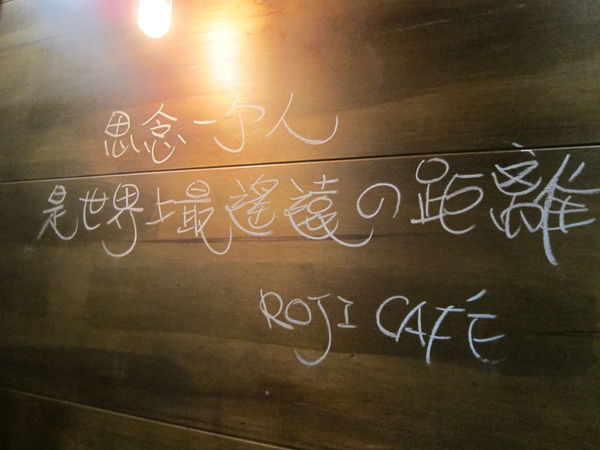 思念一个人
是世界上最遙遠の距離
ROJI CAFÉ